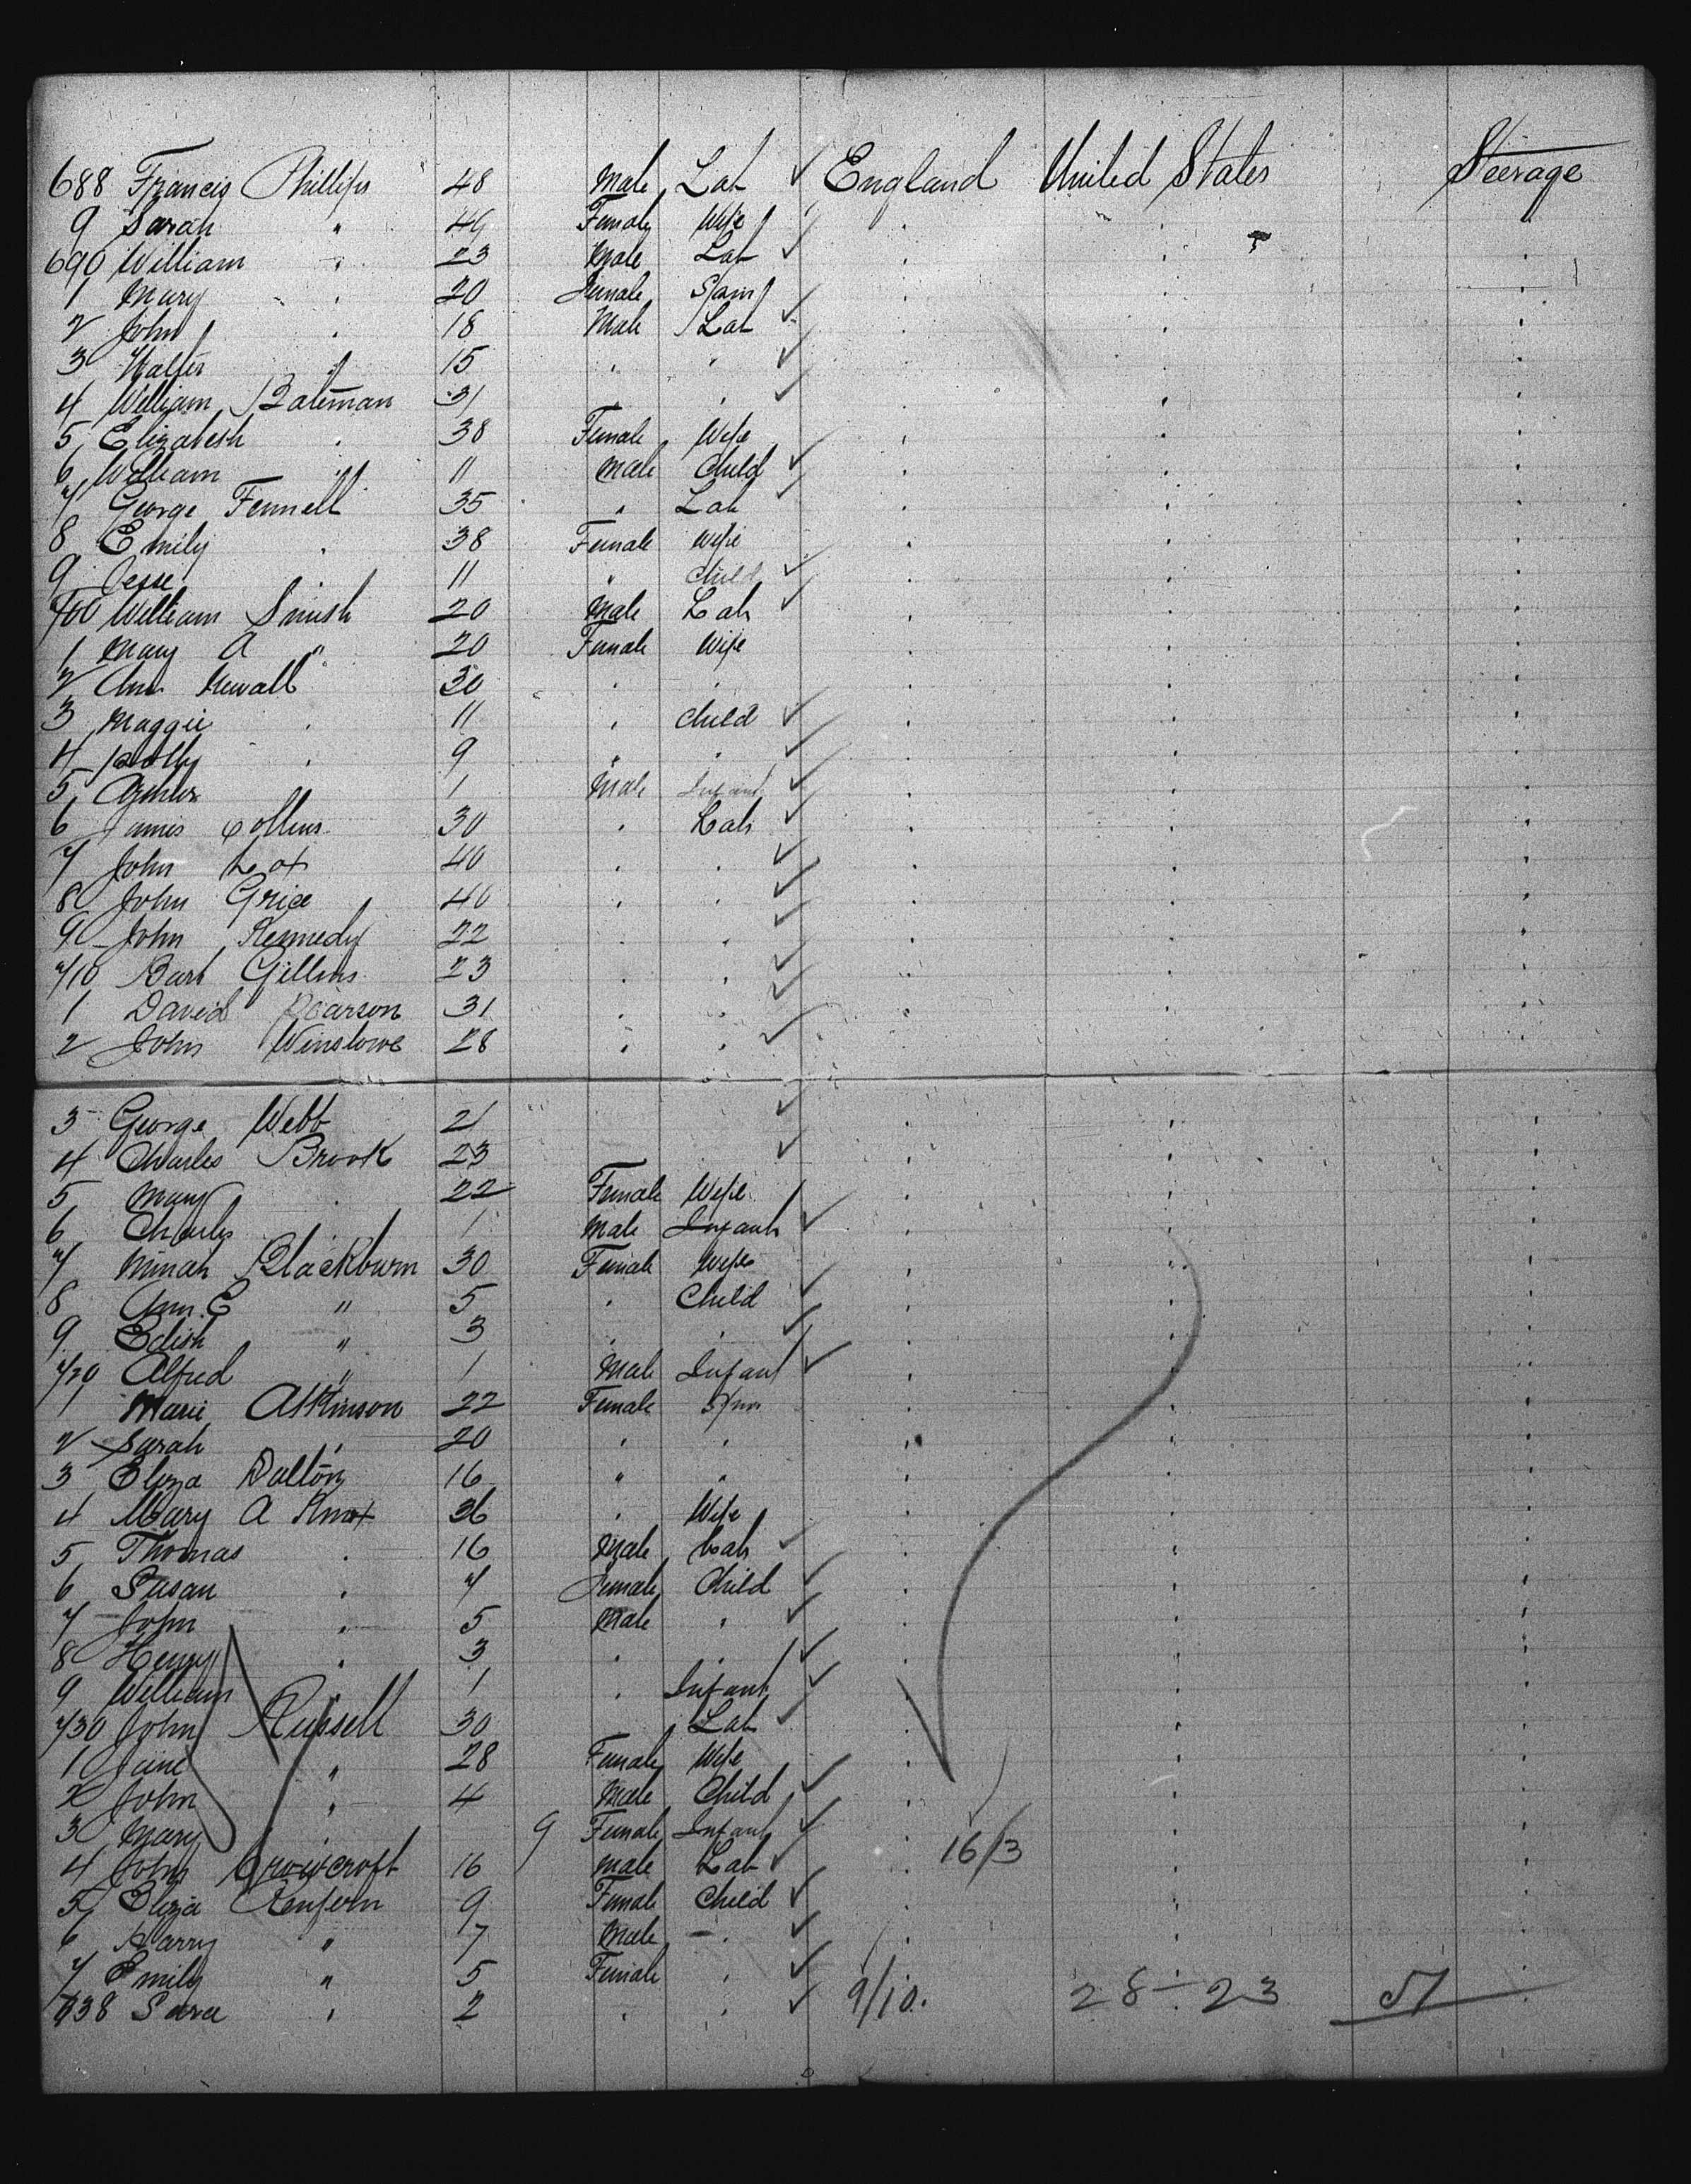 688 Francis Phillips 48 Male Lab ✓ England United States Steerage
9 Sarah " 49 Female Wife
690 William " 23 Male Lab ✓
1 Mary " 20 Female Spin
2 John " 18 Male Lab ✓
3 Walter " 15 " " ✓
4 William Bateman 31 " " ✓
5 Elizabeth " 38 Female Wife
6 William 11 Male Child ✓
7 George Fennell 35 " Lab ✓
8 Emily " 38 Female Wife
9 Jesse 11 " Child ✓
700 William Smith 20 Male Lab ✓
1 Mary A " 20 Female Wife
2 Ann Newall 30 " "
3 Maggie " 11 " Child ✓
4 Polly " 9 " " ✓
5 1 Male Infant ✓
6 James Collins 30 " Lab ✓
7 John 40 " " ✓
8 John Grice 40 " " ✓
9 John Kennedy 22 " " ✓
710 Bart Gillins 23 " " ✓
1 David Pearson 31 " " ✓
2 John Winslowe 28 " " ✓
3 George Webb 21 ✓
4 Charles Brook 23 ✓
5 Mary " 22 Female Wife
6 Charles " 1 Male Infant ✓
7 Minah Blackburn 30 Female Wife
8 Ann E " 5 " Child ✓
9 Edith " 3 " " ✓
720 Alfred " 1 Male Infant ✓
1 Marie Atkinson 22 Female Spin
2 Sarah " 20 " "
3 Eliza Dalton 16 " "
4 Mary A Knox 36 " Wife
5 Thomas " 16 Male Lab ✓
6 Susan " 7 Female Child ✓
7 John " 5 Male " ✓
8 Henry " 3 " ✓
9 William " 1 " Infant ✓
730 John Russell 30 Lab ✓
1 Jane " 28 Female Wife
2 John " 4 Male Child ✓
3 Mary " 9 Female Infant ✓
4 John Crowcroft 16 Male Lab ✓ 16/3
5 Eliza Renfern 9 Female Child ✓
6 Harry " 7 Male " ✓
7 Emily " 5 Female " ✓
738 Sara " 2 " " ✓ 9/10. 28 - 23 51